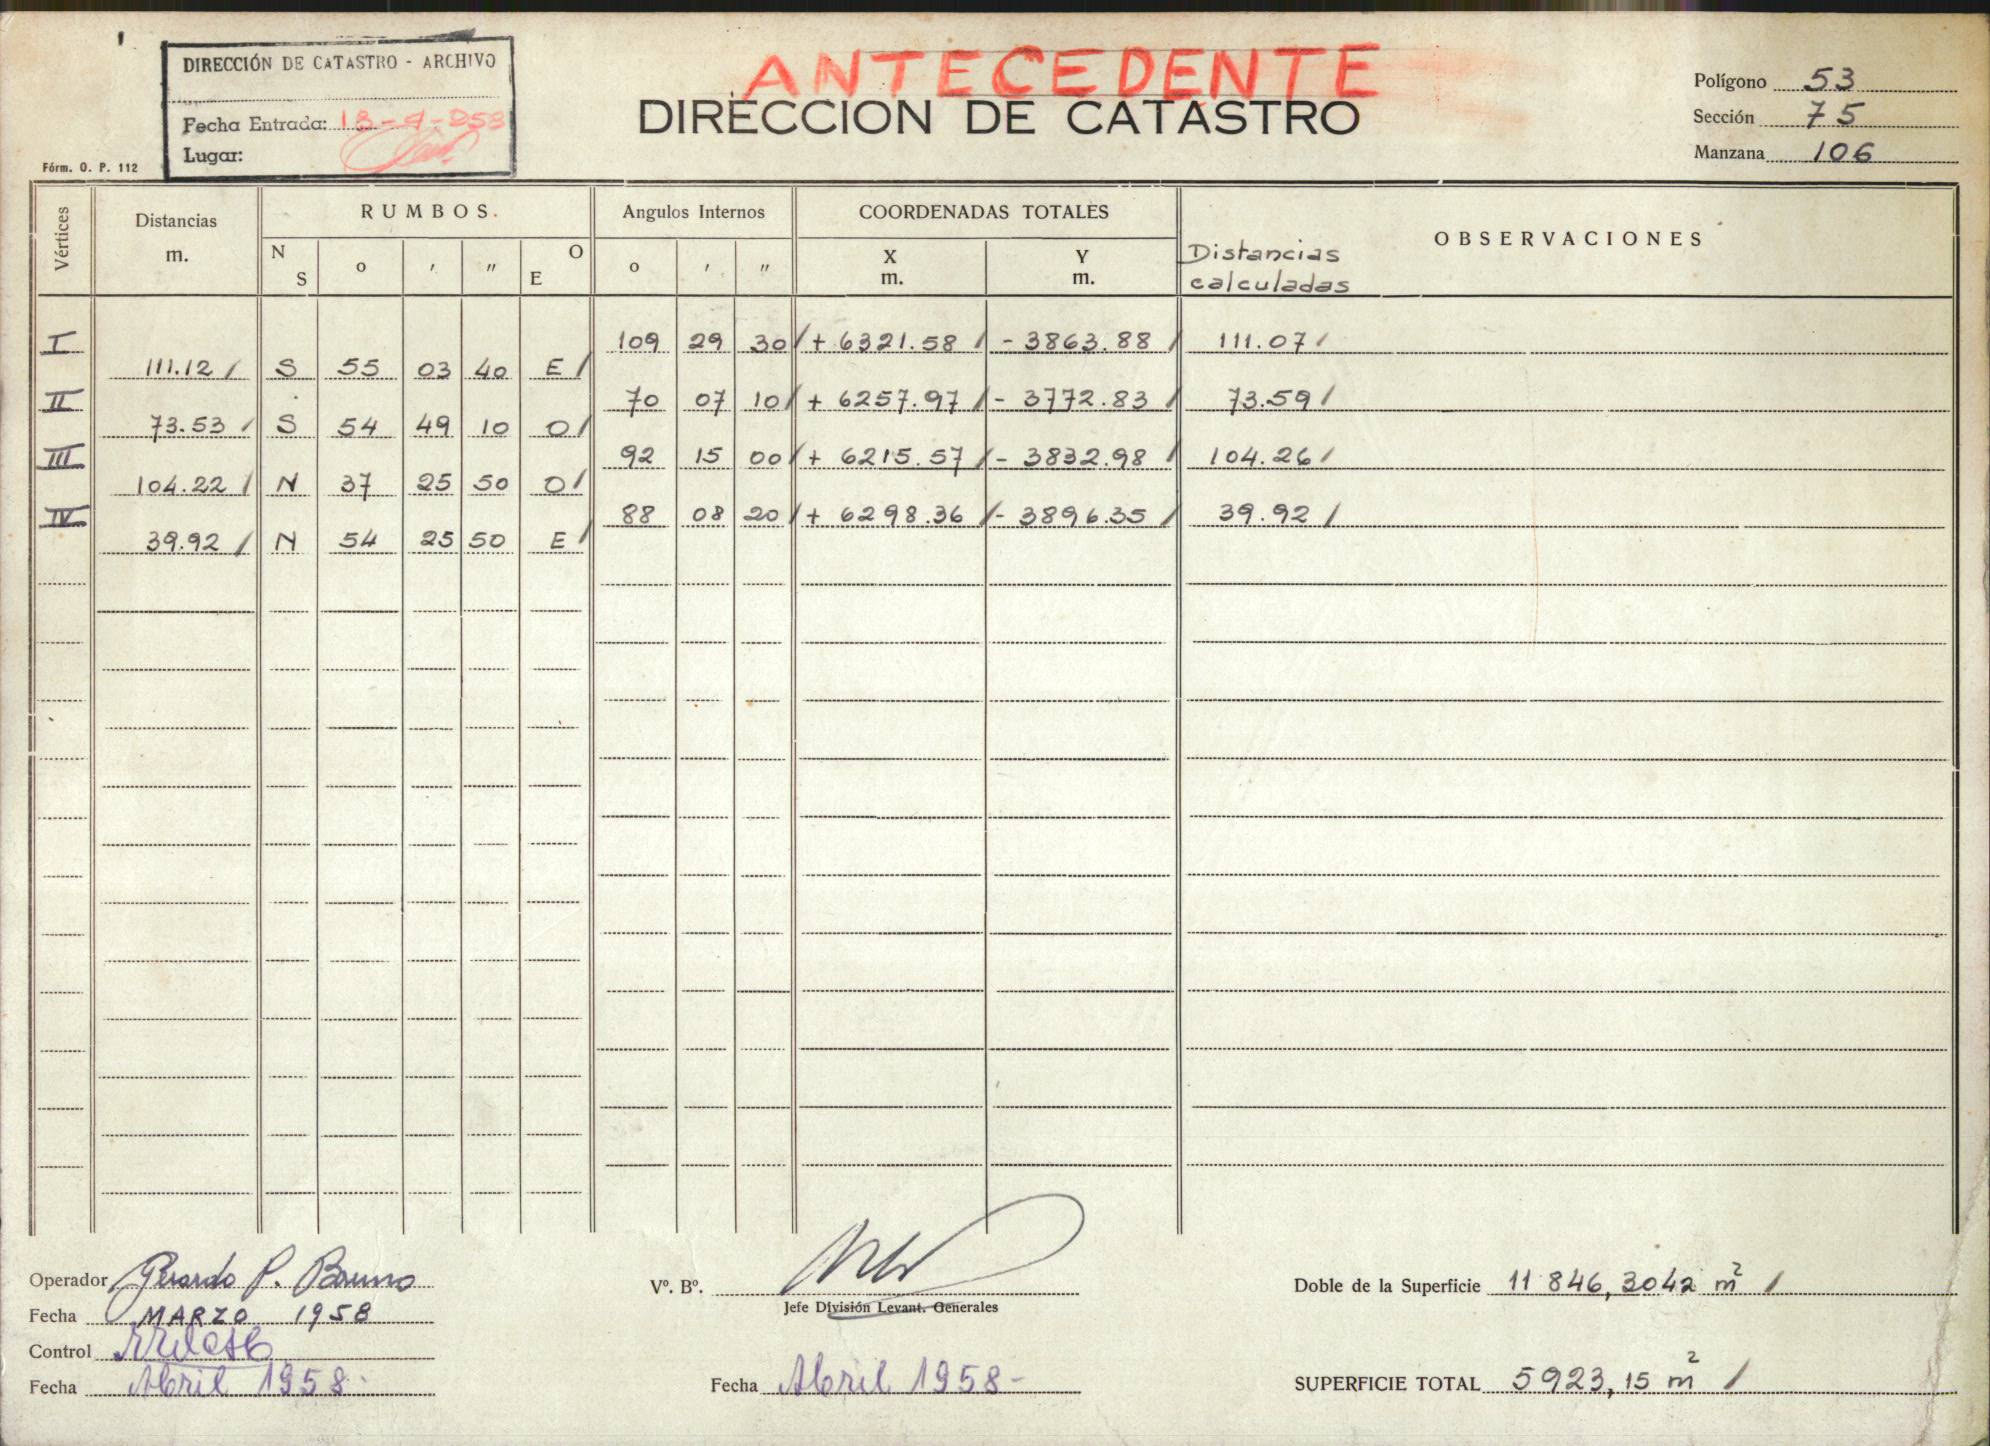 ANTECEDENTE
DIRECCIÓN DE CATASTRO - ARCHIVO
Fecha Entrada: 18-4-958
Lugar:
Fórm. O. P. 112
DIRECCION DE CATASTRO
Polígono 53
Sección 75
Manzana 106
Vértices Distancias m. RUMBOS. Angulos Internos COORDENADAS TOTALES OBSERVACIONES
N S o ' " O E o ' " X m. Y m. Distancias calculadas
I 109 29 30 / + 6321.58 / - 3863.88 / 111.07 /
111.12 / S 55 03 40 E /
II 70 07 10 / + 6257.97 / - 3772.83 / 73.59 /
73.53 / S 54 49 10 O /
III 92 15 00 / + 6215.57 / - 3832.98 / 104.26 /
104.22 / N 37 25 50 O /
IV 88 08 20 / + 6298.36 / - 3896.35 / 39.92 /
39.92 / N 54 25 50 E /
Operador Gerardo P. Bruno
Fecha MARZO 1958
Control
Fecha Abril 1958-
Vº. Bº.
Jefe División Levant. Generales
Fecha Abril 1958-
Doble de la Superficie 11 846,3042 m² /
SUPERFICIE TOTAL 5923,15 m² /